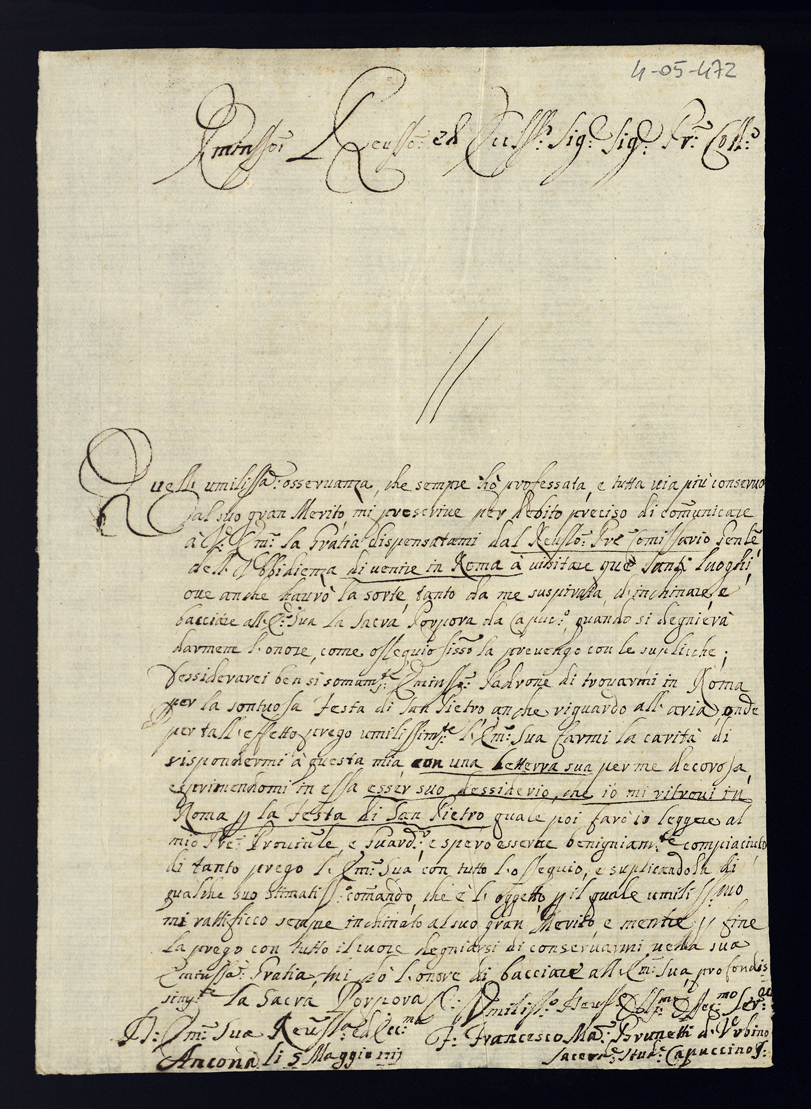 4-05-472
Eminmo: Reuſſo: ed Ecc.ſſ: Sig:e Sig:e Pr:e Coll:o
Quell umiliſſa: osservanza, che sempre hò profeſſata, e tutta uia più conseruo
al suo gran Merito, mi prescriue per debito preciso di comunicare
à V: Em: la Gratia dispensatami dal Reuſſo: Pre: Comiſsario Genle
dell'Obbidienza di uenire in Roma à uisitare que Santi Luoghi,
oue anche haurò la sorte tanto da me suspirata, d'inchinare, e
bacciare all'Em: Sua la Sacra Porpora da Capuc:o, quando si degnierà
darmene l'onore, come oſsequioſiſsso la preuengo con le suplicche;
Deſsiderarei ben si somam:te Eminſſ: Padrone di trouarmi in Roma
per la sontuosa Festa di San Pietro anche riguardo all'aria, onde
per tall'effetto prego umiliſsim:te l'Em: Sua farmi la carità di
rispondermi à questa mia con una Letterra sua per me decorosa,
esprimendomi in eſsa eſser suo deſsiderio, che io mi ritroui in
Roma p la Festa di San Pietro quale poi farò io leggere al
mio Pre: Prouiule, e Guard:, e spero eſserne benignam:te compiaciuto
di tanto prego l'Em: Sua con tutto l'oſsequio, e suplicandola di
qualche suo stimatiſs: comando, che è l'oggetto p il quale umiliſs:mo
mi ratteficco sempre inchinato al suo gran Merito, e mentre p fine
la prego con tutto il cuore degniarsi di conseruarmi nella sua
Gratia, mi dò l'onore di bacciare all'Em: Sua, profondis
sim:te la Sacra Porpora
D: Em: Suæ Reuſſa ed Ecc:ma
Umiliſs:o Deuſſ Obl:mo Oſseq:mo Ser:re
F: Francesco Ma: Brunetti d'Vrbino
Ancona li 5 Maggio
Sacerd:e Stud:e Capuccino